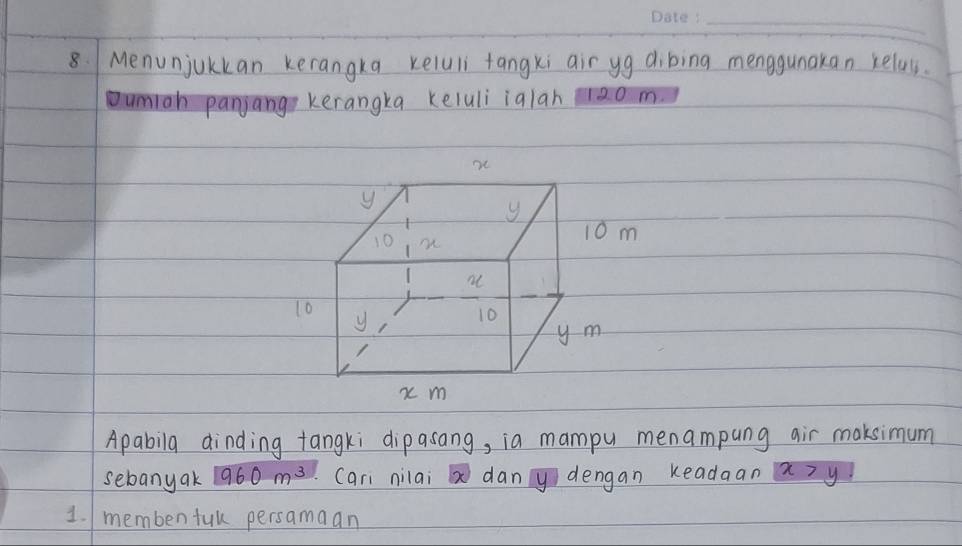 Date :
8. Menunjukkan kerangka keluli tangki air yg dibina menggunakan keluli.
Jumlah panjang kerangka keluli ialah 120 m.
x
y
y
10 m
10 x
x
10
y
10
y m
x m
Apabila dinding tangki dipasang, ia mampu menampung air maksimum
sebanyak 960 m³. Cari nilai x dan y dengan keadaan x > y.
1. membentuk persamaan